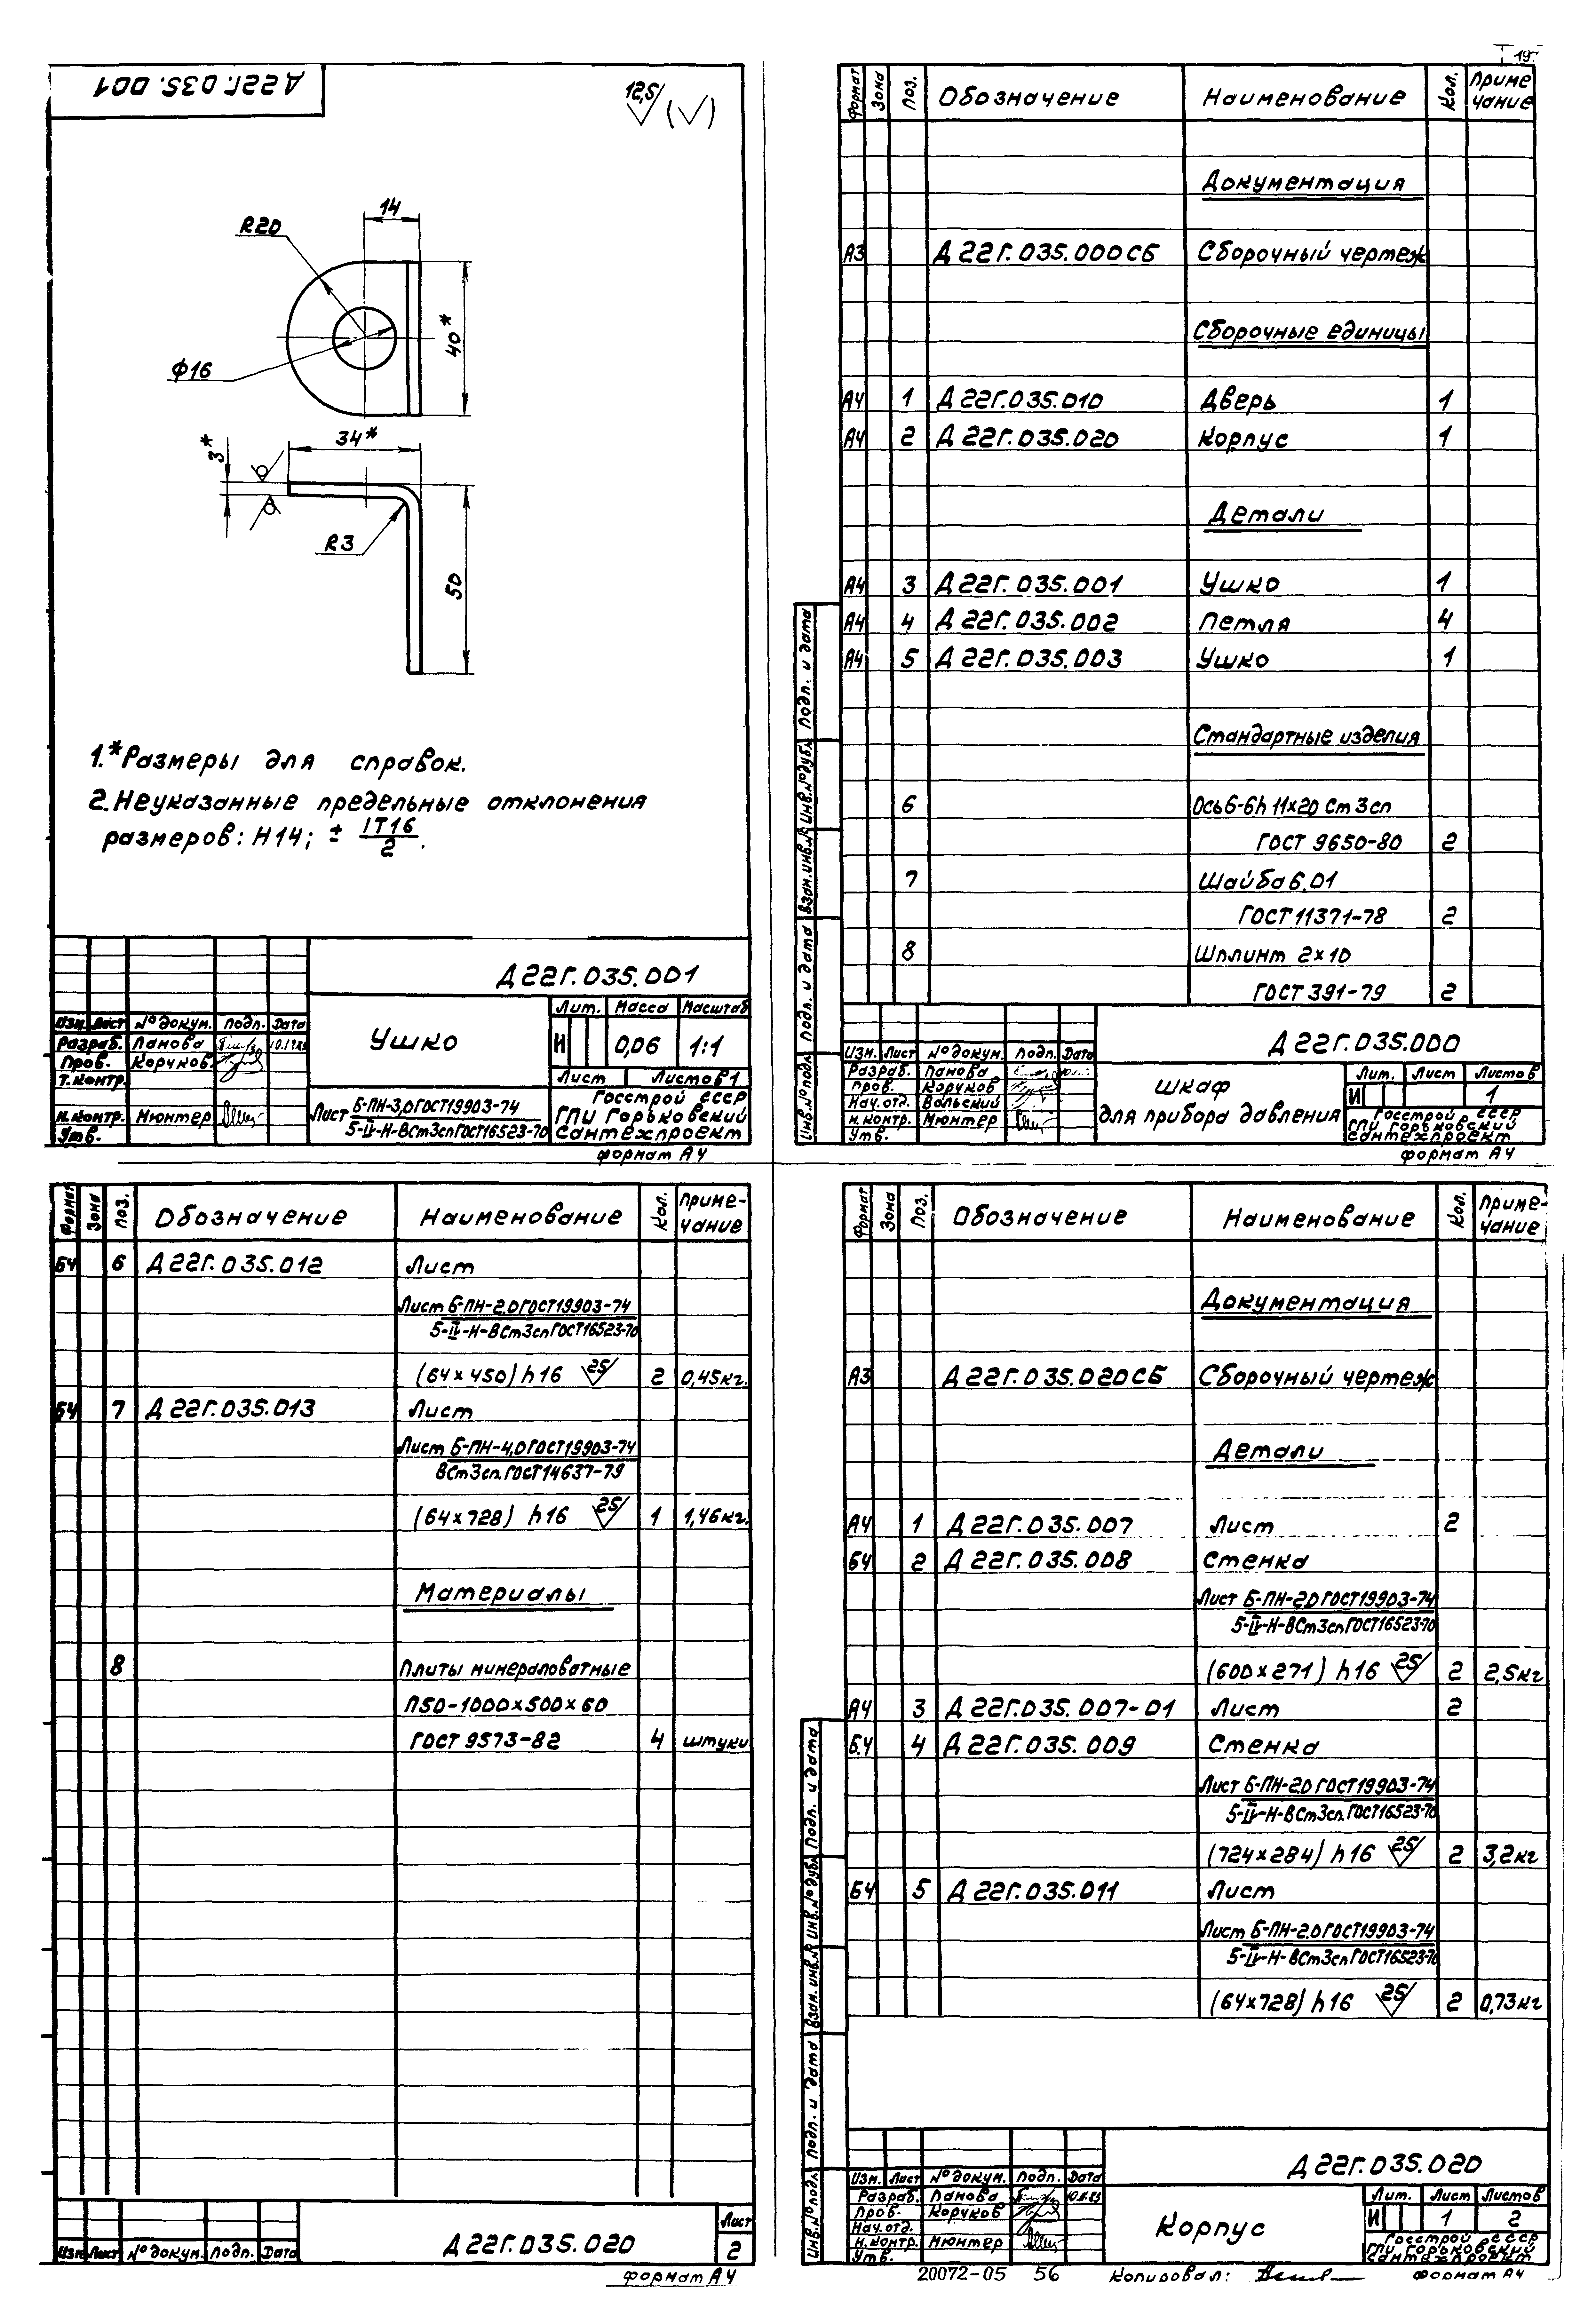 Д 22Г. 035. 001
12,5
14
R20
40*
Ф16
34*
3*
R3
50
1.*Размеры для справок.
2. Неуказанные предельные отклонения
размеров: H14; ± IT16
2 .
Д 22Г. 035. 001
Изм. Лист № докум. Подп. Дата
Разраб. Панова
Пров. Корчков
Т.контр.
Н.контр. Мюнтер
Утв.
Ушко
Лит. Масса Масштаб
И 0,06 1:1
Лист Листов 1
Лист Б-ПН-3,0 ГОСТ 19903-74
5-IV-Н-ВСт3сп ГОСТ 16523-70
Госстрой СССР
ГПИ Горьковский
Сантехпроект
формат А4
19
Формат Зона Поз. Обозначение Наименование Кол. Приме
чание
Документация
А3 Д 22Г. 035. 000 СБ Сборочный чертеж
Сборочные единицы
А4 1 Д 22Г. 035. 010 Дверь 1
А4 2 Д 22Г. 035. 020 Корпус 1
Детали
А4 3 Д 22Г. 035. 001 Ушко 1
А4 4 Д 22Г. 035. 002 Петля 4
А4 5 Д 22Г. 035. 003 Ушко 1
Стандартные изделия
6 Ось 6-6h 11×20 Ст 3 сп
ГОСТ 9650-80 2
7 Шайба 6.01
ГОСТ 11371-78 2
8 Шплинт 2×10
ГОСТ 391-79 2
Инв.№ подл. Подп. и дата Взам.инв.№ Инв.№ дубл. Подп. и дата
Д 22Г. 035. 000
Изм. Лист № докум. Подп. Дата
Разраб. Панова
Пров. Корчков
Нач.отд. Вольский
Н.контр. Мюнтер
Утв.
Шкаф
для прибора давления
Лит. Лист Листов
И 1
Госстрой СССР
ГПИ Горьковский
Сантехпроект
формат А4
Формат Зона Поз. Обозначение Наименование Кол. Приме-
чание
БЧ 6 Д 22Г. 035. 012 Лист
Лист Б-ПН-2,0 ГОСТ 19903-74
5-IV-Н-ВСт3сп ГОСТ 16523-70
(64×450) h16 25 2 0,45кг.
БЧ 7 Д 22Г. 035. 013 Лист
Лист Б-ПН-4,0 ГОСТ 19903-74
ВСт3сп. ГОСТ 14637-79
(64×728) h16 25 1 1,46кг.
Материалы
8 Плиты минераловатные
П50-1000×500×60
ГОСТ 9573-82 4 штуки
Изм. Лист № докум. Подп. Дата
Д 22Г. 035. 020
Лист
2
формат А4
Формат Зона Поз. Обозначение Наименование Кол. Приме-
чание
Документация
А3 Д 22Г. 035. 020 СБ Сборочный чертеж
Детали
А4 1 Д 22Г. 035. 007 Лист 2
БЧ 2 Д 22Г. 035. 008 Стенка
Лист Б-ПН-2,0 ГОСТ 19903-74
5-IV-Н-ВСт3сп ГОСТ 16523-70
(600×271) h16 25 2 2,5кг
А4 3 Д 22Г. 035. 007-01 Лист 2
Б.Ч 4 Д 22Г. 035. 009 Стенка
Лист Б-ПН-2,0 ГОСТ 19903-74
5-IV-Н-ВСт3сп. ГОСТ 16523-70
(724×284) h16 25 2 3,2кг
БЧ 5 Д 22Г. 035. 011 Лист
Лист Б-ПН-2,0 ГОСТ 19903-74
5-IV-Н-ВСт3сп ГОСТ 16523-70
(64×728) h16 25 2 0,73кг
Инв.№ подл. Подп. и дата Взам.инв.№ Инв.№ дубл. Подп. и дата
Д 22Г. 035. 020
Изм. Лист № докум. Подп. Дата
Разраб. Панова
Пров. Корчков
Нач.отд.
Н.контр. Мюнтер
Утв.
Корпус
Лит. Лист Листов
И 1 2
Госстрой СССР
ГПИ Горьковский
Сантехпроект
20072-05 56 Копировал: формат А4